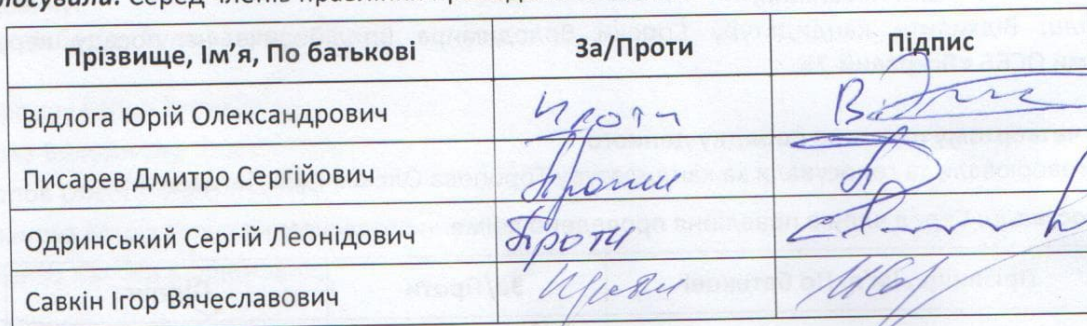 Прізвище, Ім'я, По батькові За/Проти Підпис
Відлога Юрій Олександрович Проти
Писарев Дмитро Сергійович Проти
Одринський Сергій Леонідович Проти
Савкін Ігор Вячеславович Проти